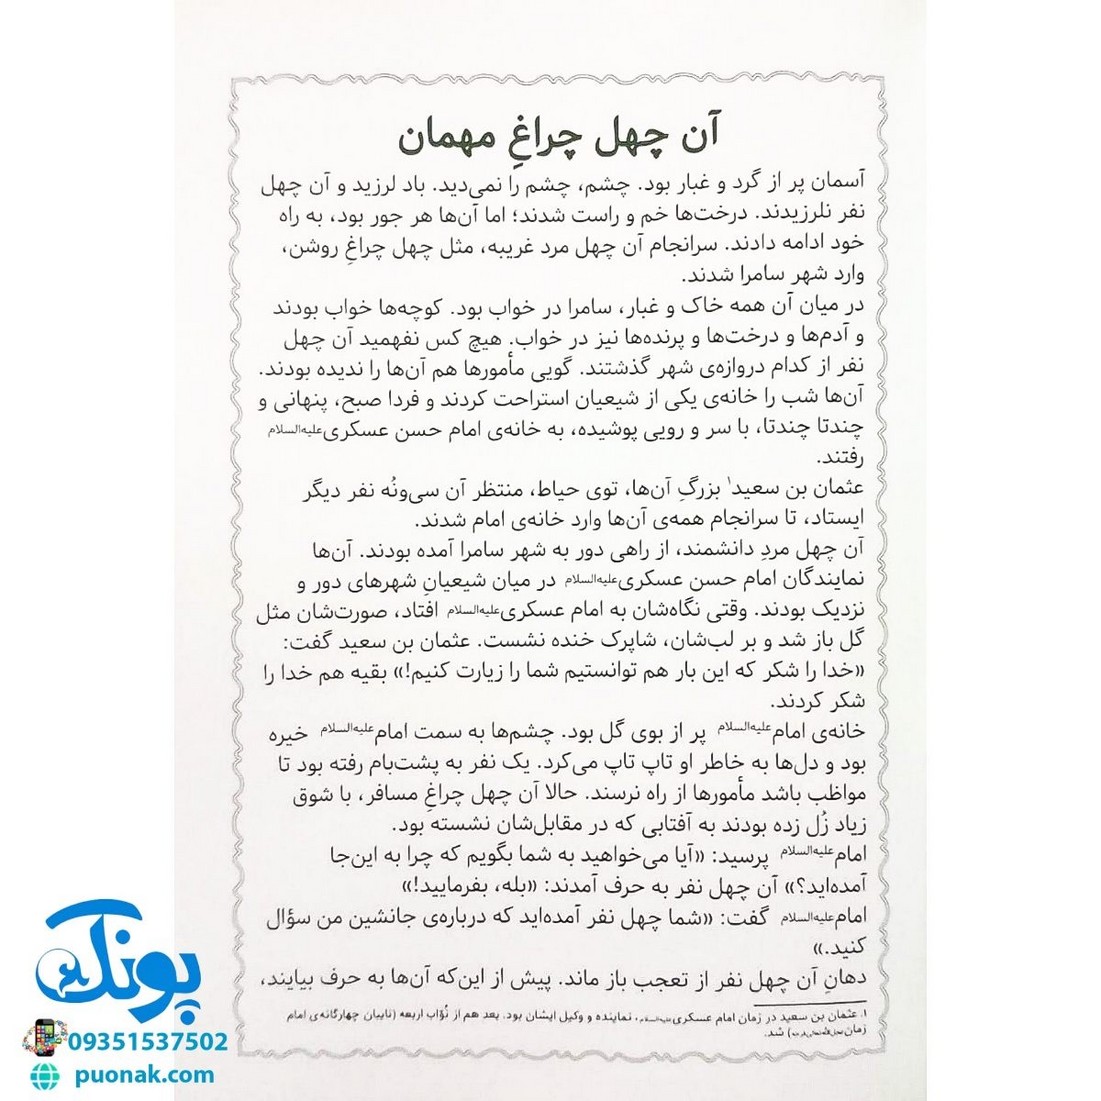 آن چهل چراغِ مهمان
آسمان پر از گرد و غبار بود. چشم، چشم را نمی‌دید. باد لرزید و آن چهل
نفر نلرزیدند. درخت‌ها خم و راست شدند؛ اما آن‌ها هر جور بود، به راه
خود ادامه دادند. سرانجام آن چهل مرد غریبه، مثل چهل چراغِ روشن،
وارد شهر سامرا شدند.
در میان آن همه خاک و غبار، سامرا در خواب بود. کوچه‌ها خواب بودند
و آدم‌ها و درخت‌ها و پرنده‌ها نیز در خواب. هیچ کس نفهمید آن چهل
نفر از کدام دروازه‌ی شهر گذشتند. گویی مأمورها هم آن‌ها را ندیده بودند.
آن‌ها شب را خانه‌ی یکی از شیعیان استراحت کردند و فردا صبح، پنهانی و
چندتا چندتا، با سر و رویی پوشیده، به خانه‌ی امام حسن عسکری علیه‌السلام
رفتند.
عثمان بن سعید۱ بزرگِ آن‌ها، توی حیاط، منتظر آن سی‌ونُه نفر دیگر
ایستاد، تا سرانجام همه‌ی آن‌ها وارد خانه‌ی امام شدند.
آن چهل مردِ دانشمند، از راهی دور به شهر سامرا آمده بودند. آن‌ها
نمایندگان امام حسن عسکری علیه‌السلام در میان شیعیانِ شهرهای دور و
نزدیک بودند. وقتی نگاه‌شان به امام عسکری علیه‌السلام افتاد، صورت‌شان مثل
گل باز شد و بر لب‌شان، شاپرک خنده نشست. عثمان بن سعید گفت:
«خدا را شکر که این بار هم توانستیم شما را زیارت کنیم!» بقیه هم خدا را
شکر کردند.
خانه‌ی امام علیه‌السلام پر از بوی گل بود. چشم‌ها به سمت امام علیه‌السلام خیره
بود و دل‌ها به خاطر او تاپ تاپ می‌کرد. یک نفر به پشت‌بام رفته بود تا
مواظب باشد مأمورها از راه نرسند. حالا آن چهل چراغِ مسافر، با شوق
زیاد زُل زده بودند به آفتابی که در مقابل‌شان نشسته بود.
امام علیه‌السلام پرسید: «آیا می‌خواهید به شما بگویم که چرا به این‌جا
آمده‌اید؟» آن چهل نفر به حرف آمدند: «بله، بفرمایید!»
امام علیه‌السلام گفت: «شما چهل نفر آمده‌اید که درباره‌ی جانشین من سؤال
کنید.»
دهانِ آن چهل نفر از تعجب باز ماند. پیش از این‌که آن‌ها به حرف بیایند،
۱. عثمان بن سعید در زمان امام عسکری علیه‌السلام، نماینده و وکیل ایشان بود. بعد هم از نُوّاب اربعه (نایبان چهارگانه‌ی امام
زمان) شد.
پونک
09351537502
puonak.com